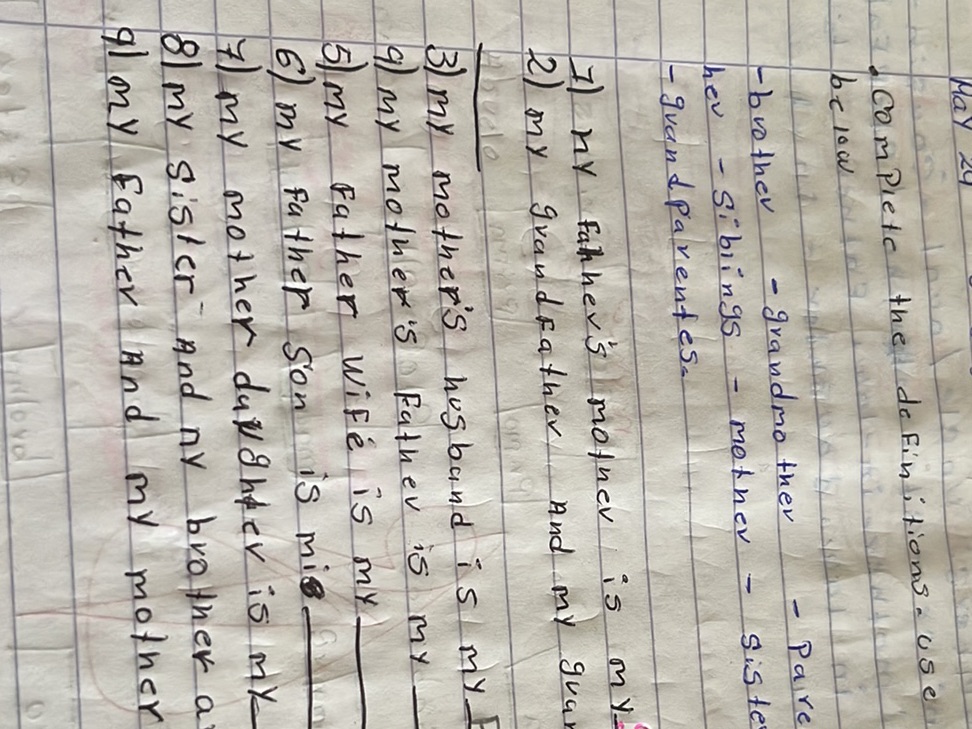 May 24
• complete the definitions. use
below
- brother - grandmother - Pare
her - sibings - mother - siste
- grandparentes.
1) my father's mother is my
2) my grandfather and my gran
3) my mother's husband is my
4) my mother's father is my
5) my father wife is my
6) my father son is mi
7) my mother daughter is my
8) my sister and my brother a
9) my father and my mother